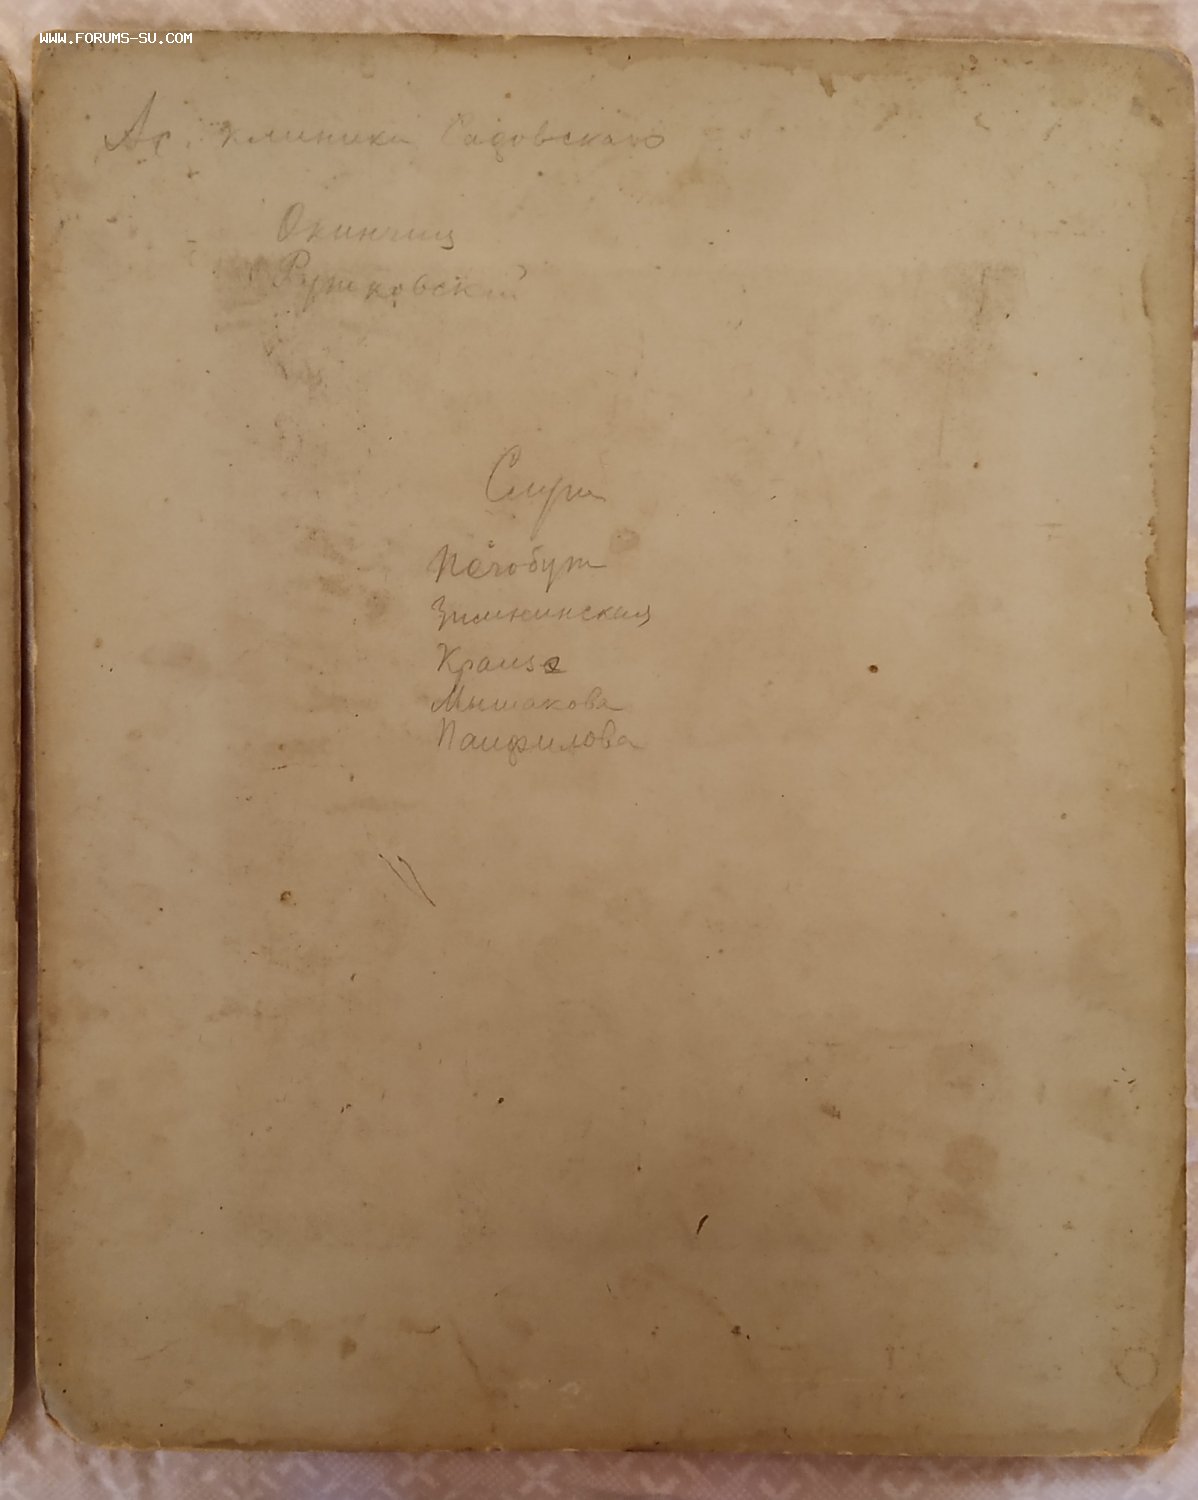 WWW.FORUMS-SU.COM
Ас. клиники Садовскаго
Окинчиц
Рутковский
Слуш
Печобут
Краузе
Мышакова
Панфилова